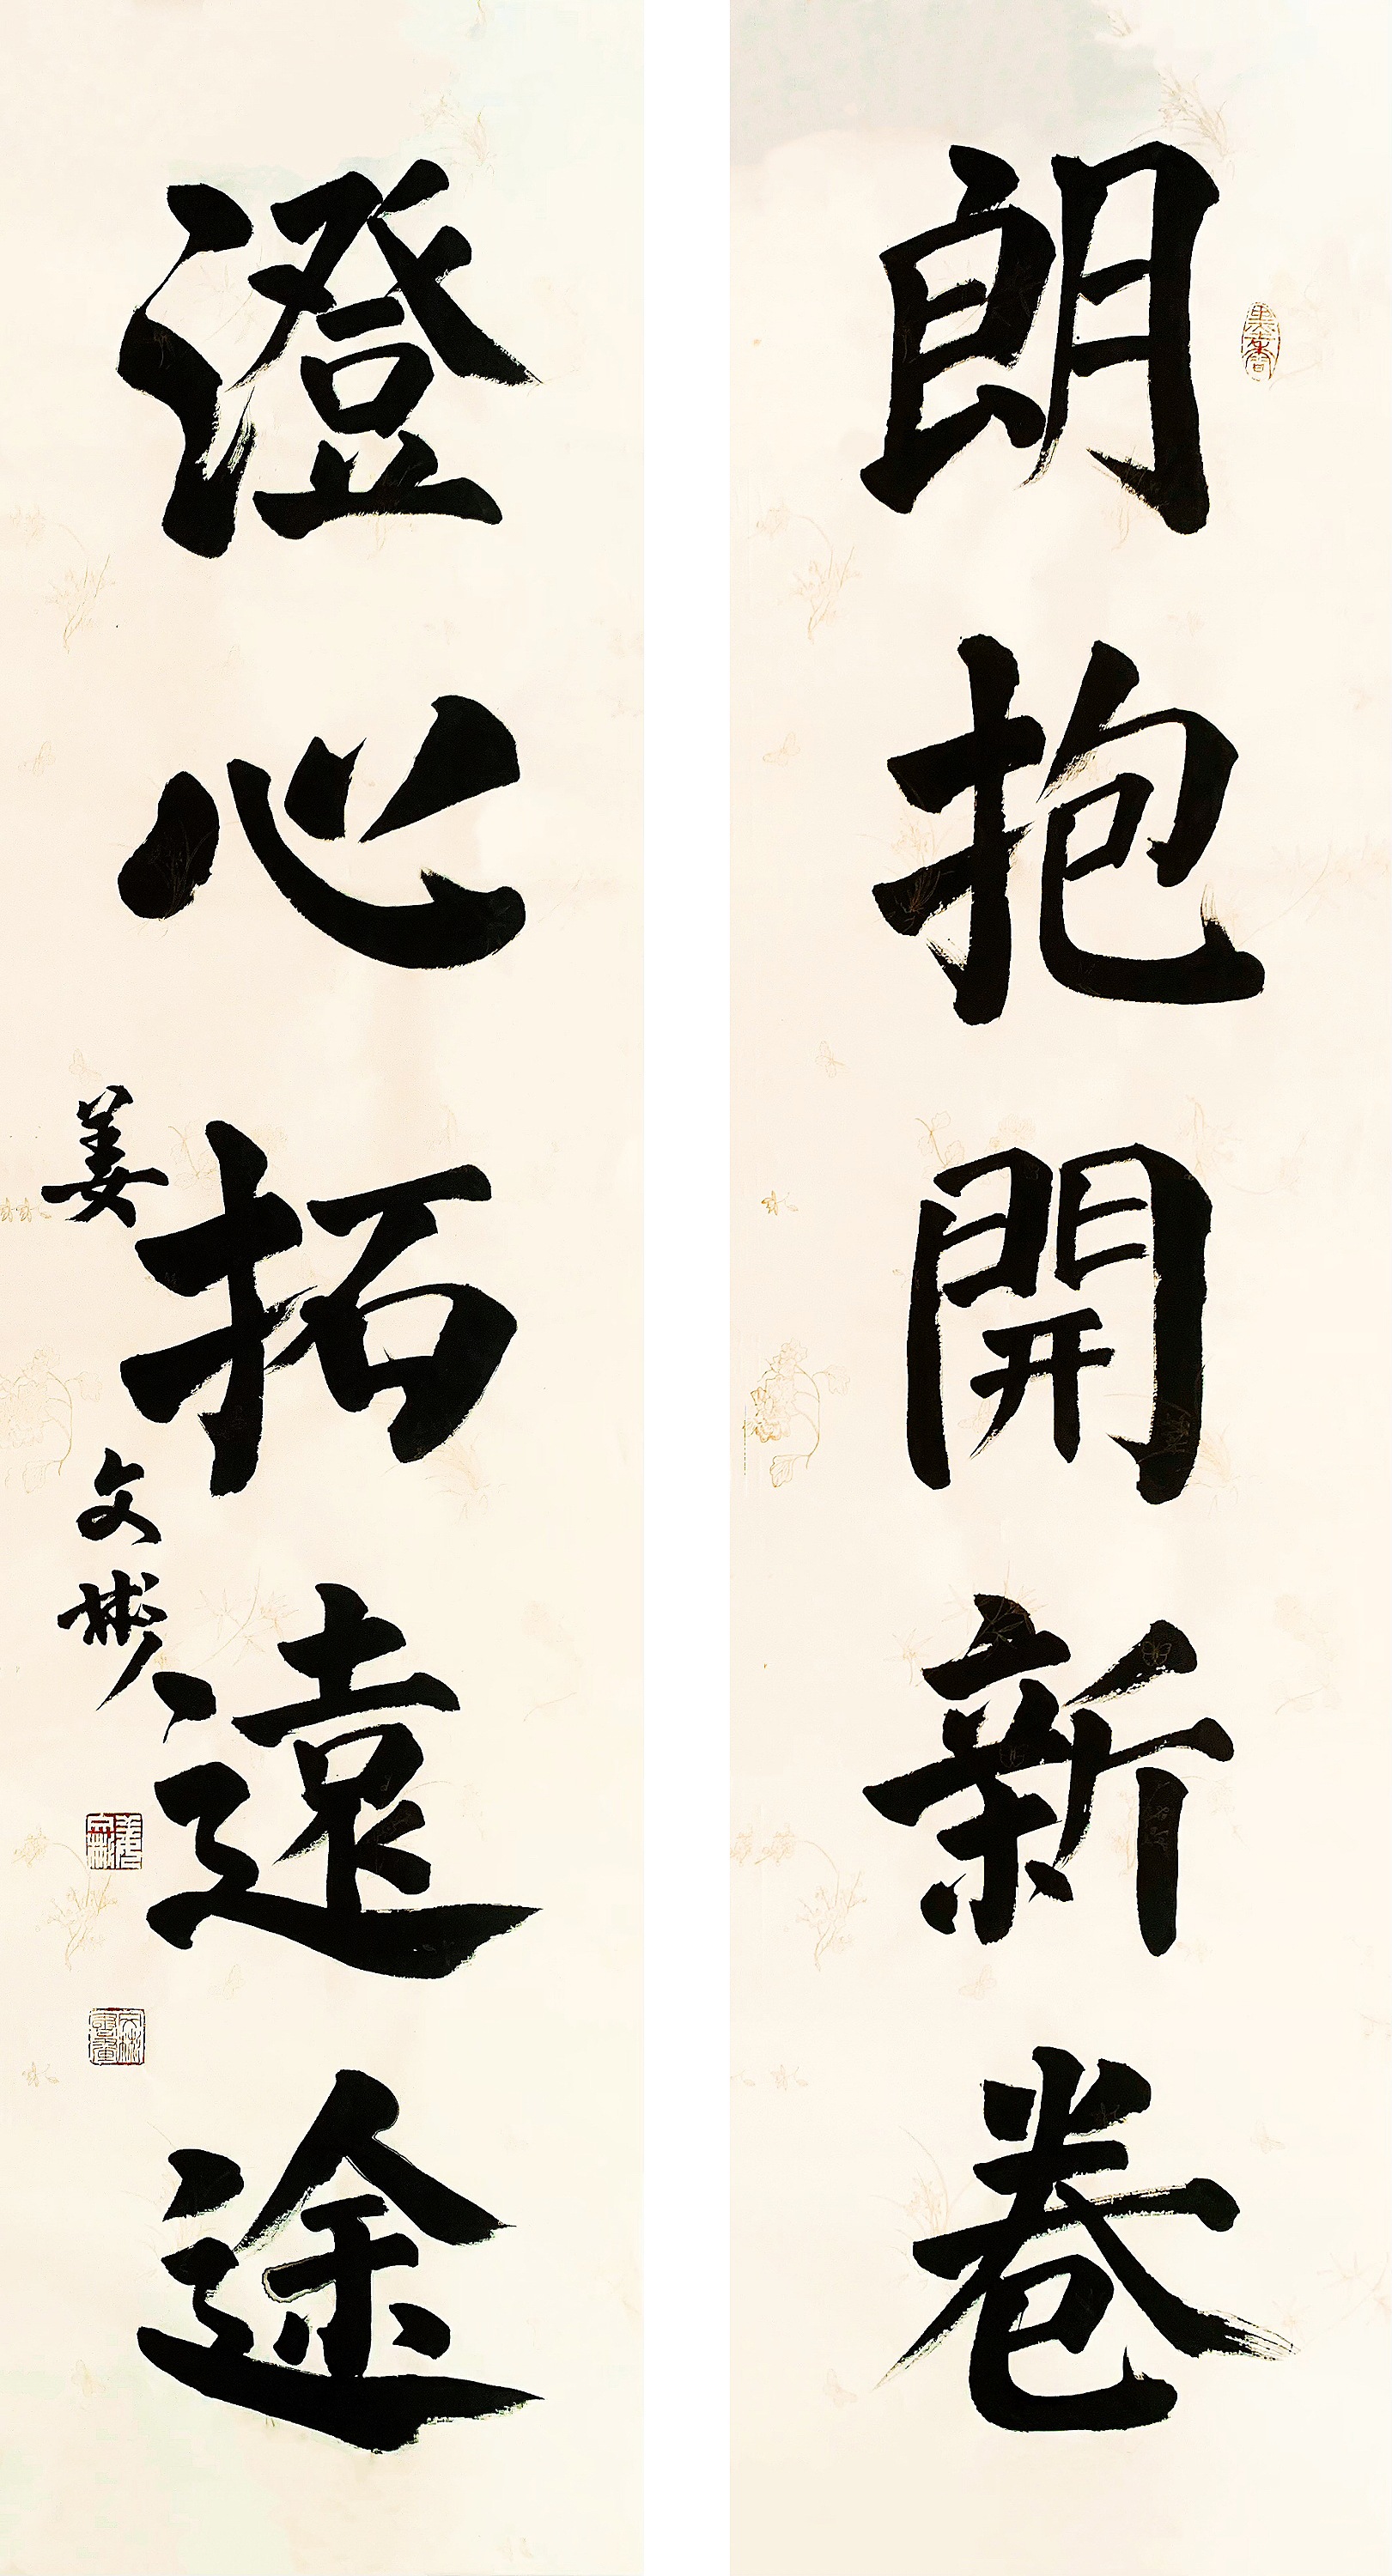 朗抱開新卷
澄心拓遠途
姜文彬